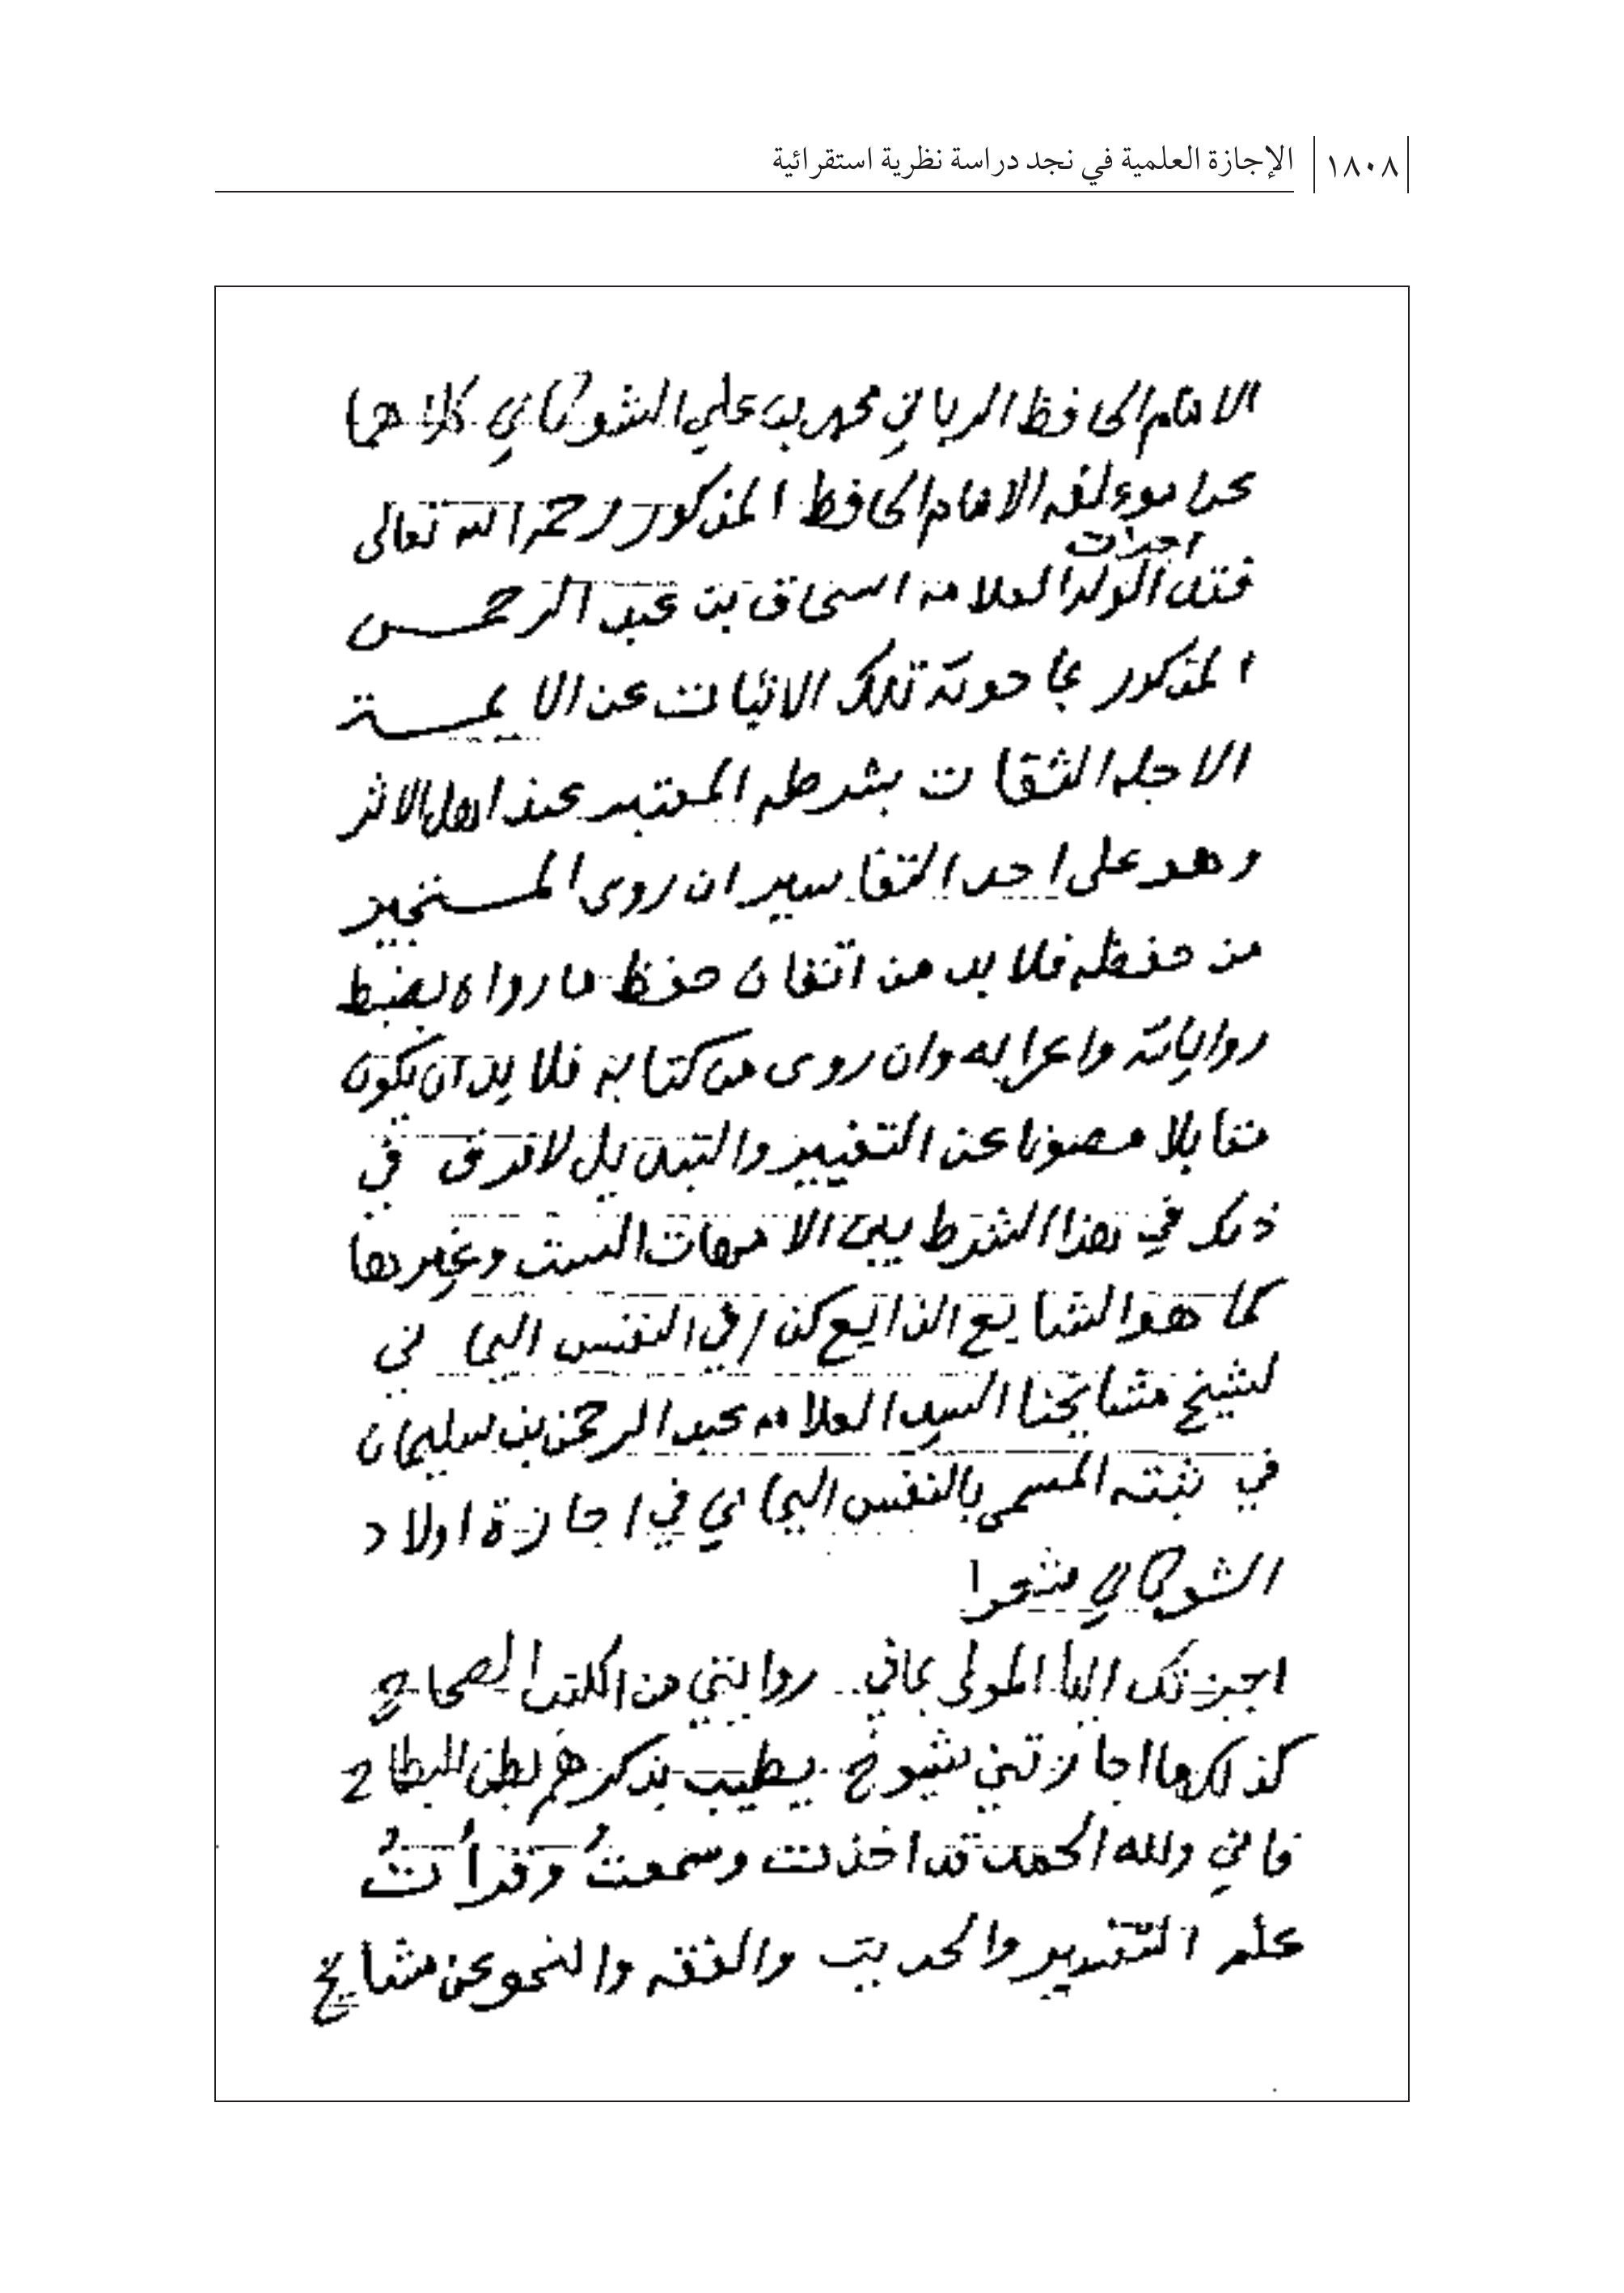 ١٨٠٨ الإجازة العلمية في نجد دراسة نظرية استقرائية
الامام الحافظ الرباني محمد بن علي الشوكاني كلاهما
عن مؤلفه الامام الحافظ المذكور رحمه الله تعالى
اجزت
الولد العلامه اسحاق بن عبد الرحمن
المذكور بما حوته تلك الاثبات عن الائمة
الاجله الثقات بشرطه المعتبر عند اهل الاثر
وهو على احد التفاسير ان روى المستجيز
من حفظه فلا بد من اتقان حفظ ما رواه بضبط
رواياته واعرابه وان روى من كتابه فلا بد ان يكون
مقابلا مصونا عن التغيير والتبديل لا فرق في
ذلك في هذا الشرط بين الامهات الست وغيرها
كما هو الشايع الذايع كذا في النفس اليماني
لشيخ مشايخنا السيد العلامه عبد الرحمن بن سليمان
في ثبته المسمى بالنفس اليماني في اجازة اولاد
الشوكاني شعرا
اجزتك ايها المولى بما في روايتي من الكتب الصحاح
كذلك ما اجازتني شيوخ يطيب بذكرهم بطن البطاح
فاني ولله الحمد قد اخذت وسمعتُ وقرأتُ
علم التفسير والحديث والفقه والنحو عن مشايخ